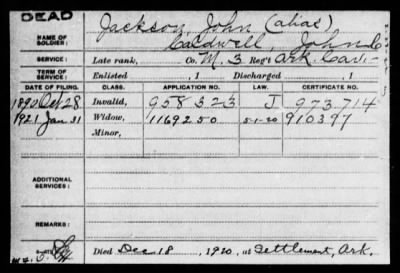 DEAD
NAME OF SOLDIER: Jackson, John (alias)
Caldwell, John C
SERVICE: Late rank, Co. M. 3 Reg't Ark. Cav.
TERM OF SERVICE: Enlisted , 1 Discharged , 1
DATE OF FILING. CLASS. APPLICATION NO. LAW. CERTIFICATE NO.
1890 Oct 28 Invalid, 958323 J 973.714
1921 Jan. 31 Widow, 1169250 5-1-20 910397
Minor,
ADDITIONAL SERVICES:
REMARKS:
Died Dec 18, 1920, at Settlement, Ark.